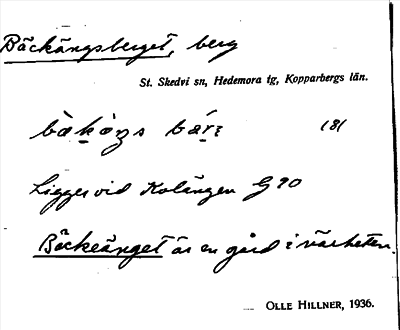 Bäckängsberget, berg
St. Skedvi sn, Hedemora tg, Kopparbergs län.
Ligger vid Kolängen G 90
Bäckeänget är en gård i närheten.
OLLE HILLNER, 1936.